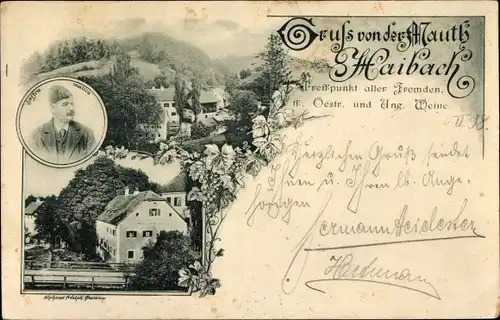 Gruss von der Mauth
Haibach
Treffpunkt aller Fremden.
ff. Oestr. und Ung. Weine.
II. 98.
Herzlichen Gruß sendet
Ihnen u. Ihren lb. Ange-
hörigen
Hermann
Hartman